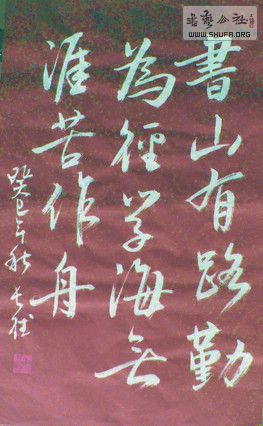 書山有路勤
為徑学海無
涯苦作舟
癸巳年秋
書藝公社
WWW.SHUFA.ORG